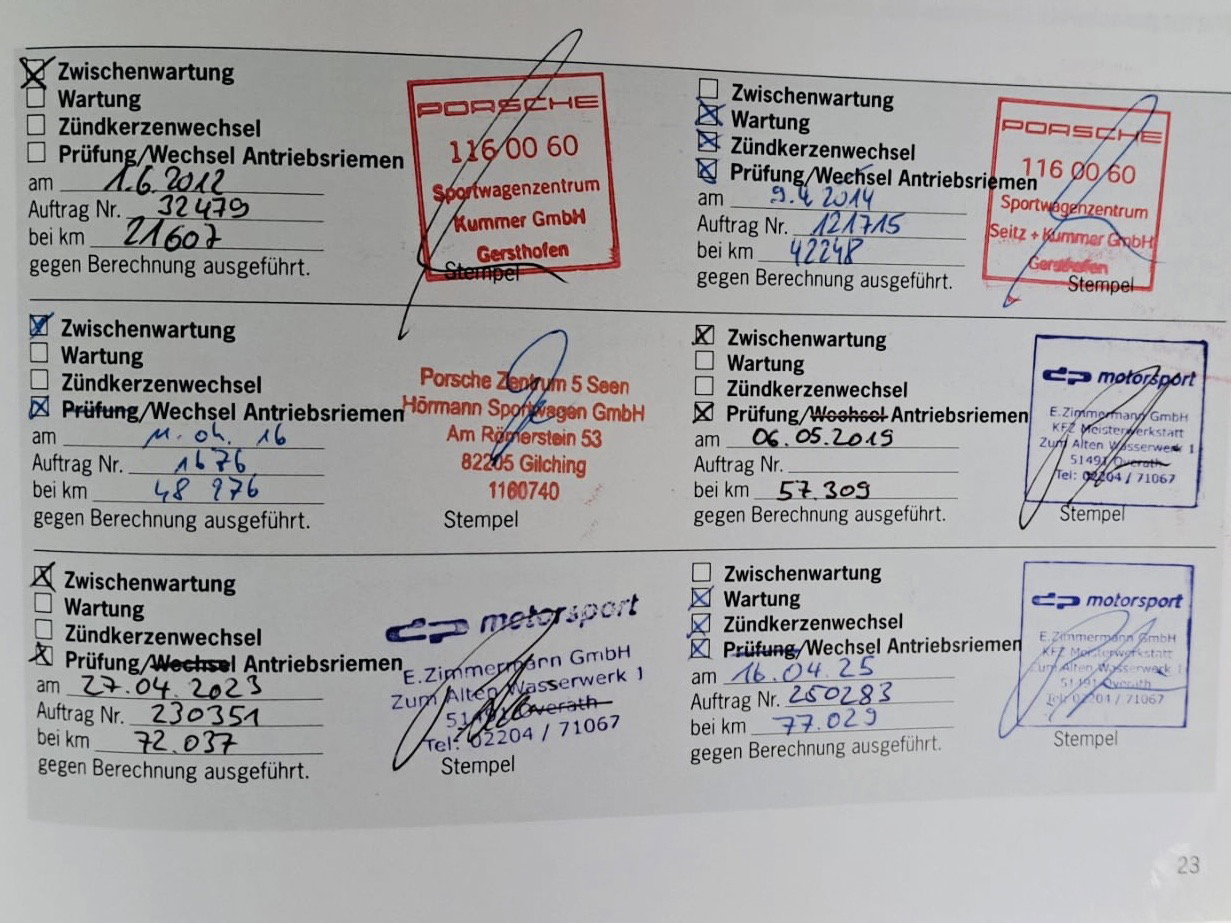 Zwischenwartung
Wartung
Zündkerzenwechsel
Prüfung/Wechsel Antriebsriemen
am 1.6.2012
Auftrag Nr. 32479
bei km 21607
gegen Berechnung ausgeführt.
PORSCHE
116 00 60
Sportwagenzentrum
Kummer GmbH
Gersthofen
Stempel
Zwischenwartung
Wartung
Zündkerzenwechsel
Prüfung/Wechsel Antriebsriemen
am 9.4.2014
Auftrag Nr. 121715
bei km 42248
gegen Berechnung ausgeführt.
PORSCHE
116 00 60
Sportwagenzentrum
Seitz + Kummer GmbH
Gersthofen
Stempel
Zwischenwartung
Wartung
Zündkerzenwechsel
Prüfung/Wechsel Antriebsriemen
am 16
Auftrag Nr. 1676
bei km 48 976
gegen Berechnung ausgeführt.
Porsche Zentrum 5 Seen
Hörmann Sportwagen GmbH
Am Römerstein 53
82205 Gilching
1160740
Stempel
Zwischenwartung
Wartung
Zündkerzenwechsel
Prüfung/Wechsel Antriebsriemen
am 06.05.2019
Auftrag Nr.
bei km 57.309
gegen Berechnung ausgeführt.
dp motorsport
E.Zimmermann GmbH
KFZ Meisterwerkstatt
Zum Alten Wasserwerk 1
51491 Overath
Tel: 02204 / 71067
Stempel
Zwischenwartung
Wartung
Zündkerzenwechsel
Prüfung/Wechsel Antriebsriemen
am 27.04.2023
Auftrag Nr. 230351
bei km 72.037
gegen Berechnung ausgeführt.
dp motorsport
E.Zimmermann GmbH
Zum Alten Wasserwerk 1
51491 Overath
Tel: 02204 / 71067
Stempel
Zwischenwartung
Wartung
Zündkerzenwechsel
Prüfung/Wechsel Antriebsriemen
am 16.04.25
Auftrag Nr. 250283
bei km 77.029
gegen Berechnung ausgeführt.
dp motorsport
E.Zimmermann GmbH
KFZ Meisterwerkstatt
Zum Alten Wasserwerk 1
51491 Overath
Tel: 02204 / 71067
Stempel
23